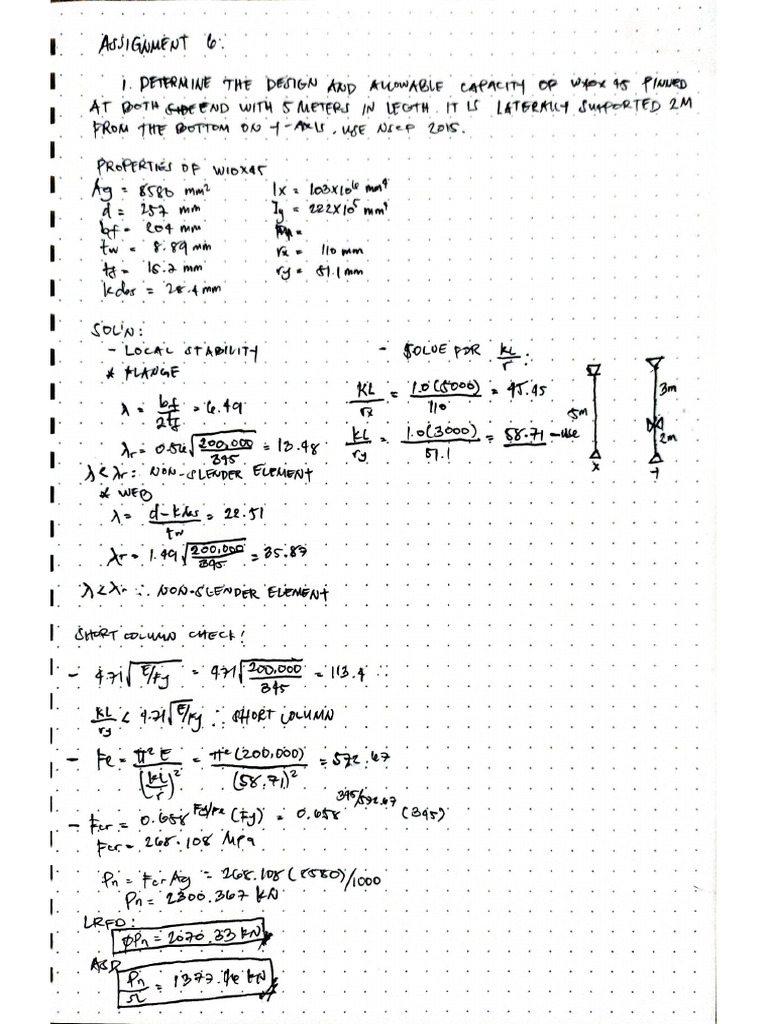 ASSIGNMENT 6:
1. DETERMINE THE DESIGN AND ALLOWABLE CAPACITY OF W10X45 PINNED
AT BOTH END WITH 5 METERS IN LEGTH. IT IS LATERALLY SUPPORTED 2M
FROM THE BOTTOM ON Y-AXIS. USE NSCP 2015.
PROPERTIES OF W10X45
Ag = 8580 mm²
d = 257 mm
bf = 204 mm
tw = 8.89 mm
tf = 15.7 mm
kdes = 28.4 mm
Ix = 103X10⁶ mm⁴
Iy = 222X10⁵ mm⁴
rx = 110 mm
ry = 51.1 mm
SOL'N:
- LOCAL STABILITY
* FLANGE
λ = bf/2tf = 6.49
λr = 0.56√(200,000/345) = 13.48
λ < λr : NON-SLENDER ELEMENT
* WEB
λ = (d-kdes)/tw = 22.51
λr = 1.49√(200,000/345) = 35.87
λ < λr ∴ NON-SLENDER ELEMENT
- SOLVE FOR KL/r :
KL/rx = 1.0(5000)/110 = 45.45
KL/ry = 1.0(3000)/51.1 = 58.71 - use
5m
x
3m
2m
Y
SHORT COLUMN CHECK!
- 4.71√(E/Fy) = 4.71√(200,000/345) = 113.4 ∴
KL/ry < 4.71√(E/Fy) ∴ SHORT COLUMN
- Fe = π²E/(KL/r)² = π²(200,000)/(58.71)² = 572.67
- Fcr = 0.658^(Fy/Fe) (Fy) = 0.658^(345/572.67) (345)
Fcr = 268.108 Mpa
Pn = Fcr Ag = 268.108(8580)/1000
Pn = 2300.367 KN
LRFD:
ØPn = 2070.33 KN
ASD
Pn/Ω = 1377.46 KN